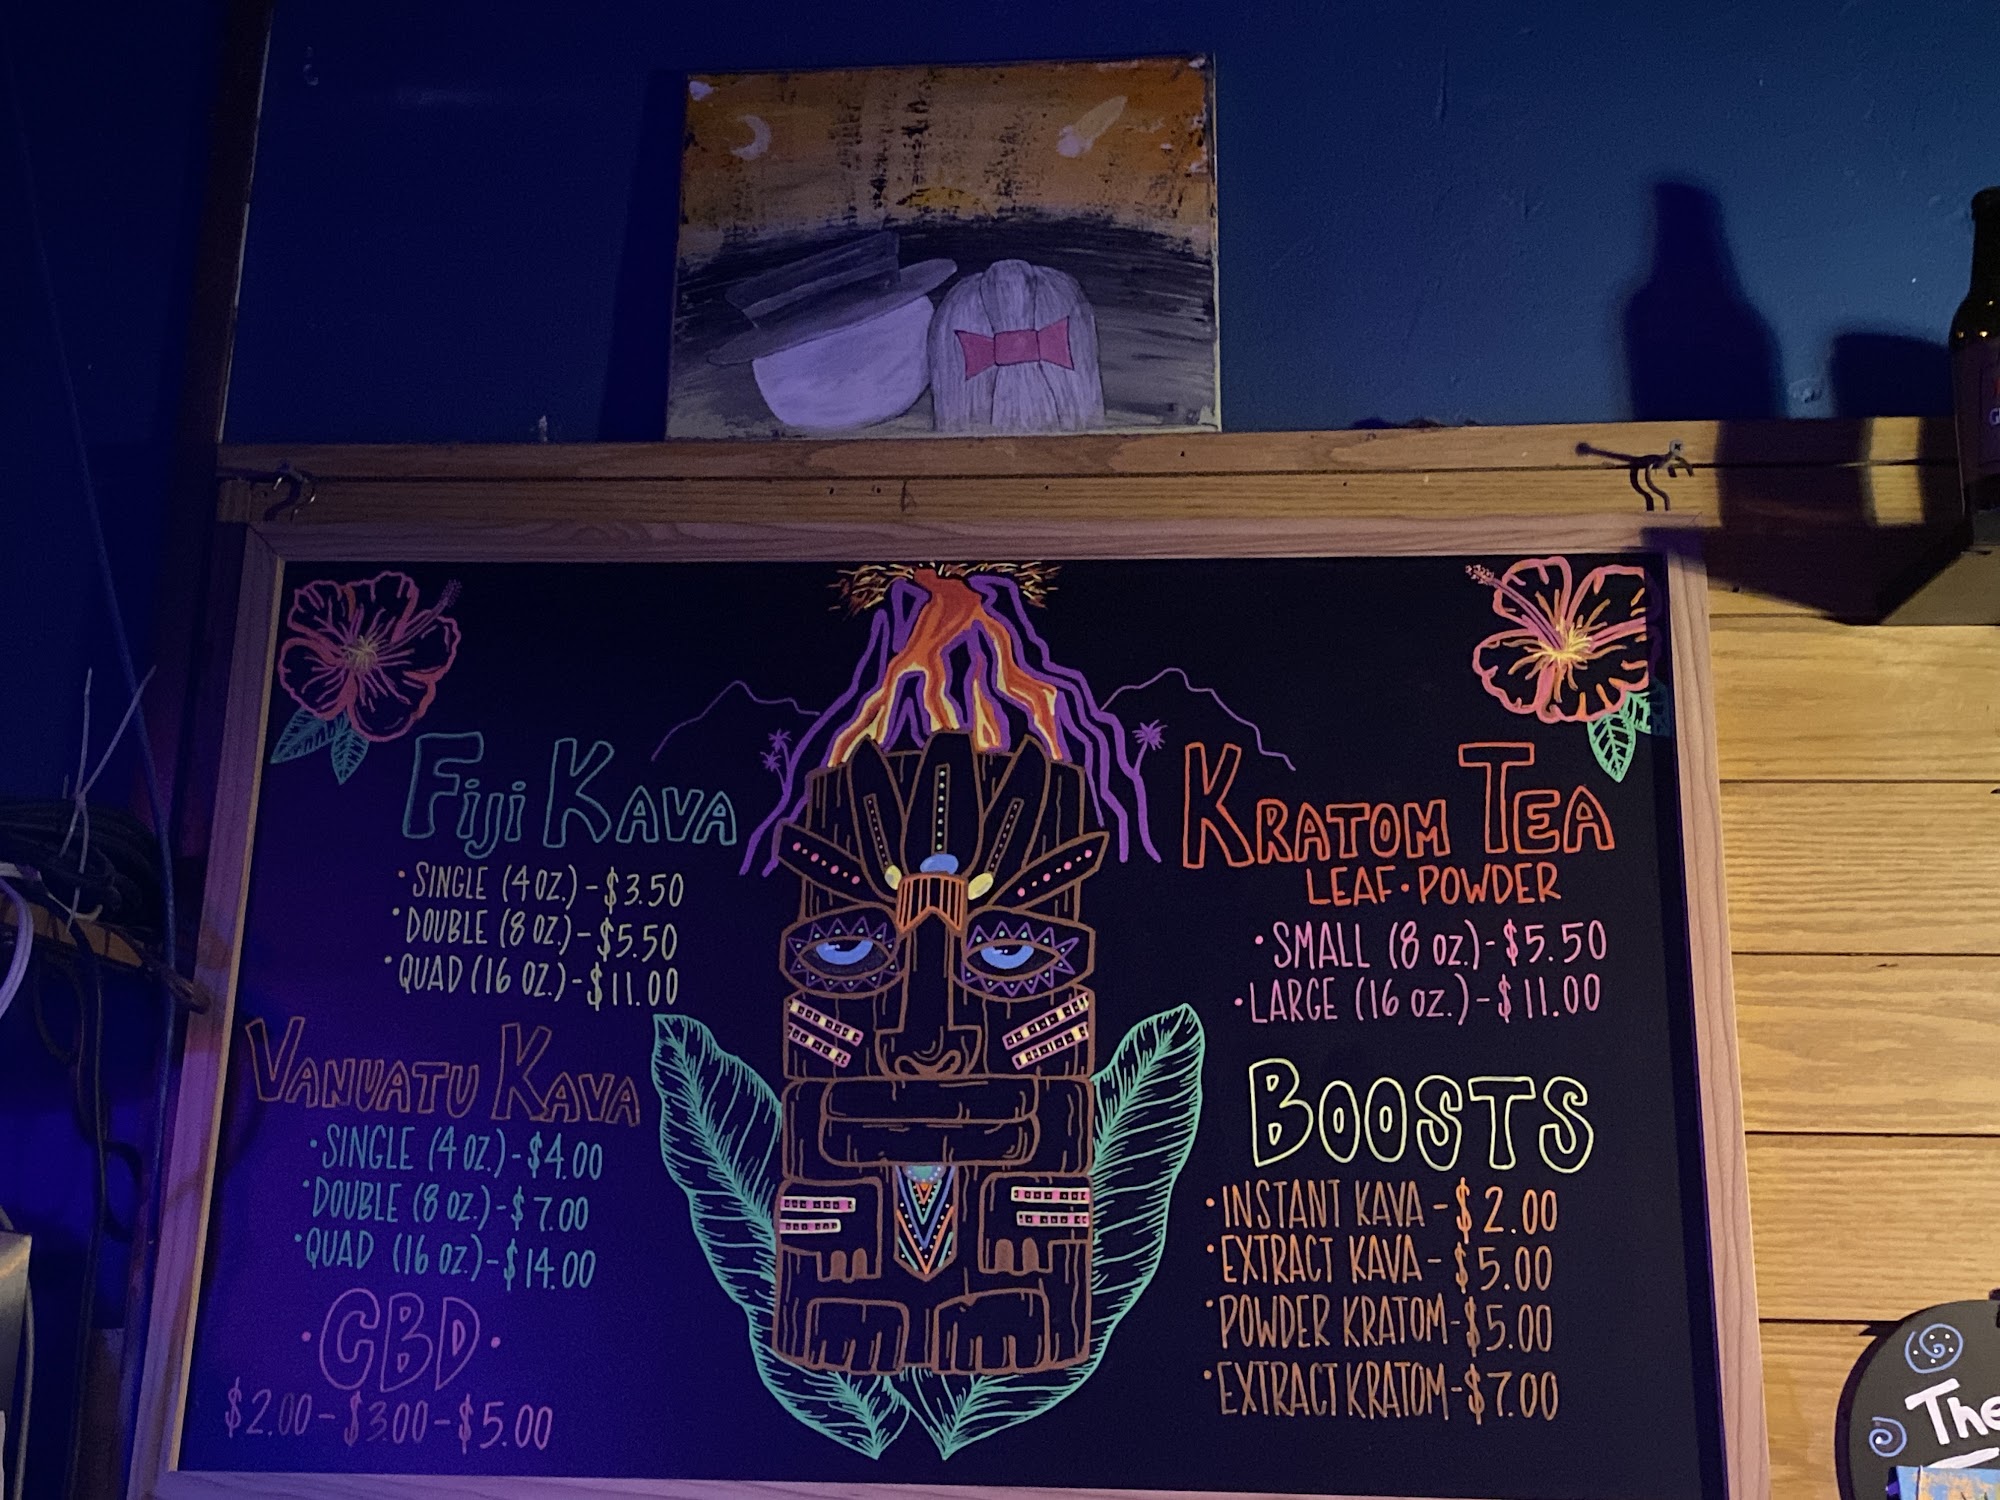 FIJI KAVA
• SINGLE (4 OZ.) - $3.50
• DOUBLE (8 OZ.) - $5.50
• QUAD (16 OZ.) - $11.00
VANUATU KAVA
• SINGLE (4 OZ.) - $4.00
• DOUBLE (8 OZ.) - $7.00
• QUAD (16 OZ.) - $14.00
• CBD •
$2.00 - $3.00 - $5.00
KRATOM TEA
LEAF • POWDER
• SMALL (8 OZ.) - $5.50
• LARGE (16 OZ.) - $11.00
BOOSTS
• INSTANT KAVA - $2.00
• EXTRACT KAVA - $5.00
• POWDER KRATOM - $5.00
• EXTRACT KRATOM - $7.00
The